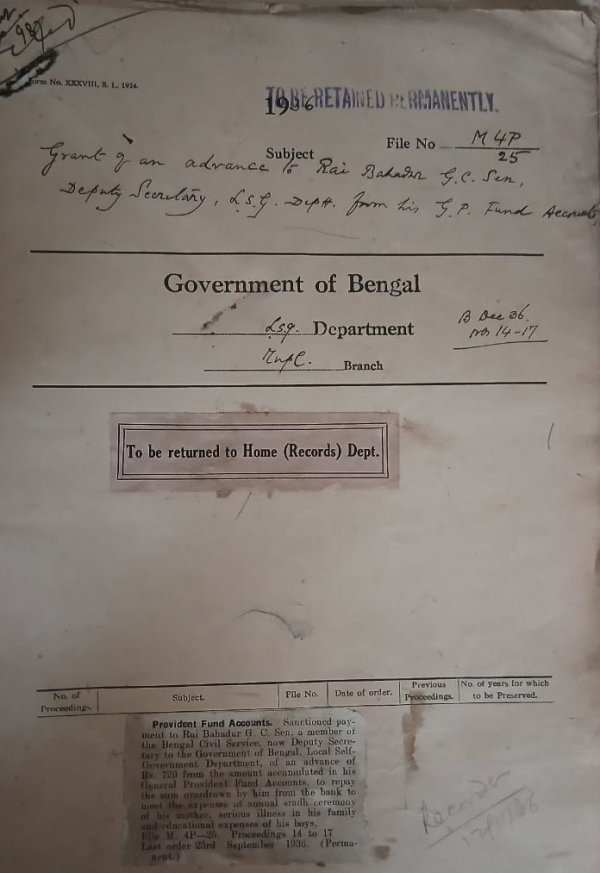 Form No. XXXVIII, S. I., 1934.
TO BE RETAINED PERMANENTLY.
1936
File No M 4P
25
Subject
Grant of an advance to Rai Bahadur G.C. Sen,
Deputy Secretary, L.S.G. Deptt. from his G.P. Fund Accounts
Government of Bengal
L.S.G. Department
Branch
B Dec 36.
nos 14-17
To be returned to Home (Records) Dept.
No. of Proceedings.
Subject.
File No.
Date of order.
Previous Proceedings.
No. of years for which to be Preserved.
Provident Fund Accounts. Sanctioned pay-
ment to Rai Bahadur G. C. Sen, a member of
the Bengal Civil Service, now Deputy Secre-
tary to the Government of Bengal, Local Self-
Government Department, of an advance of
Rs. 720 from the amount accumulated in his
General Provident Fund Accounts, to repay
the sum overdrawn by him from the bank to
meet the expenses of annual sradh ceremony
of his mother, serious illness in his family
and educational expenses of his boys.
File M. 4P—25. Proceedings 14 to 17
Last order 23rd September 1936. (Perma-
nent.)
Recorder